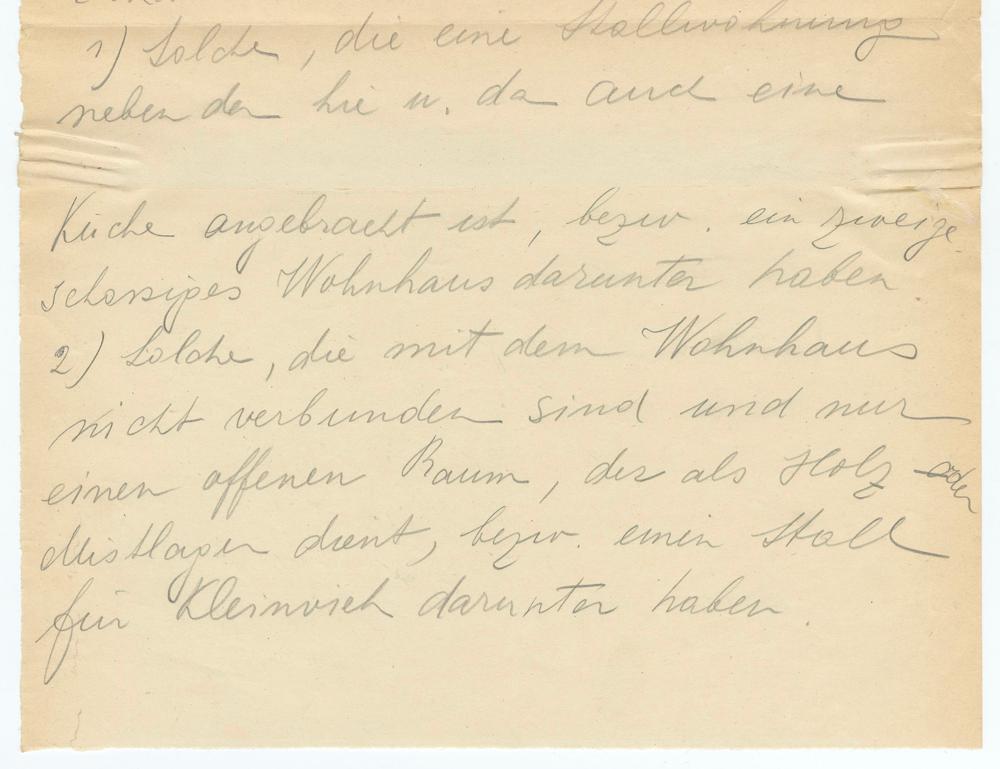 1) Solche, die eine Stallwohnung
neben der hie u. da auch eine
Küche angebracht ist, bezw. ein zweige
schossiges Wohnhaus darunter haben
2) Solche, die mit dem Wohnhaus
nicht verbunden sind und nur
einen offenen Raum, der als Holz oder
Mistlager dient, bezw. einen Stall
für Kleinvieh darunter haben.